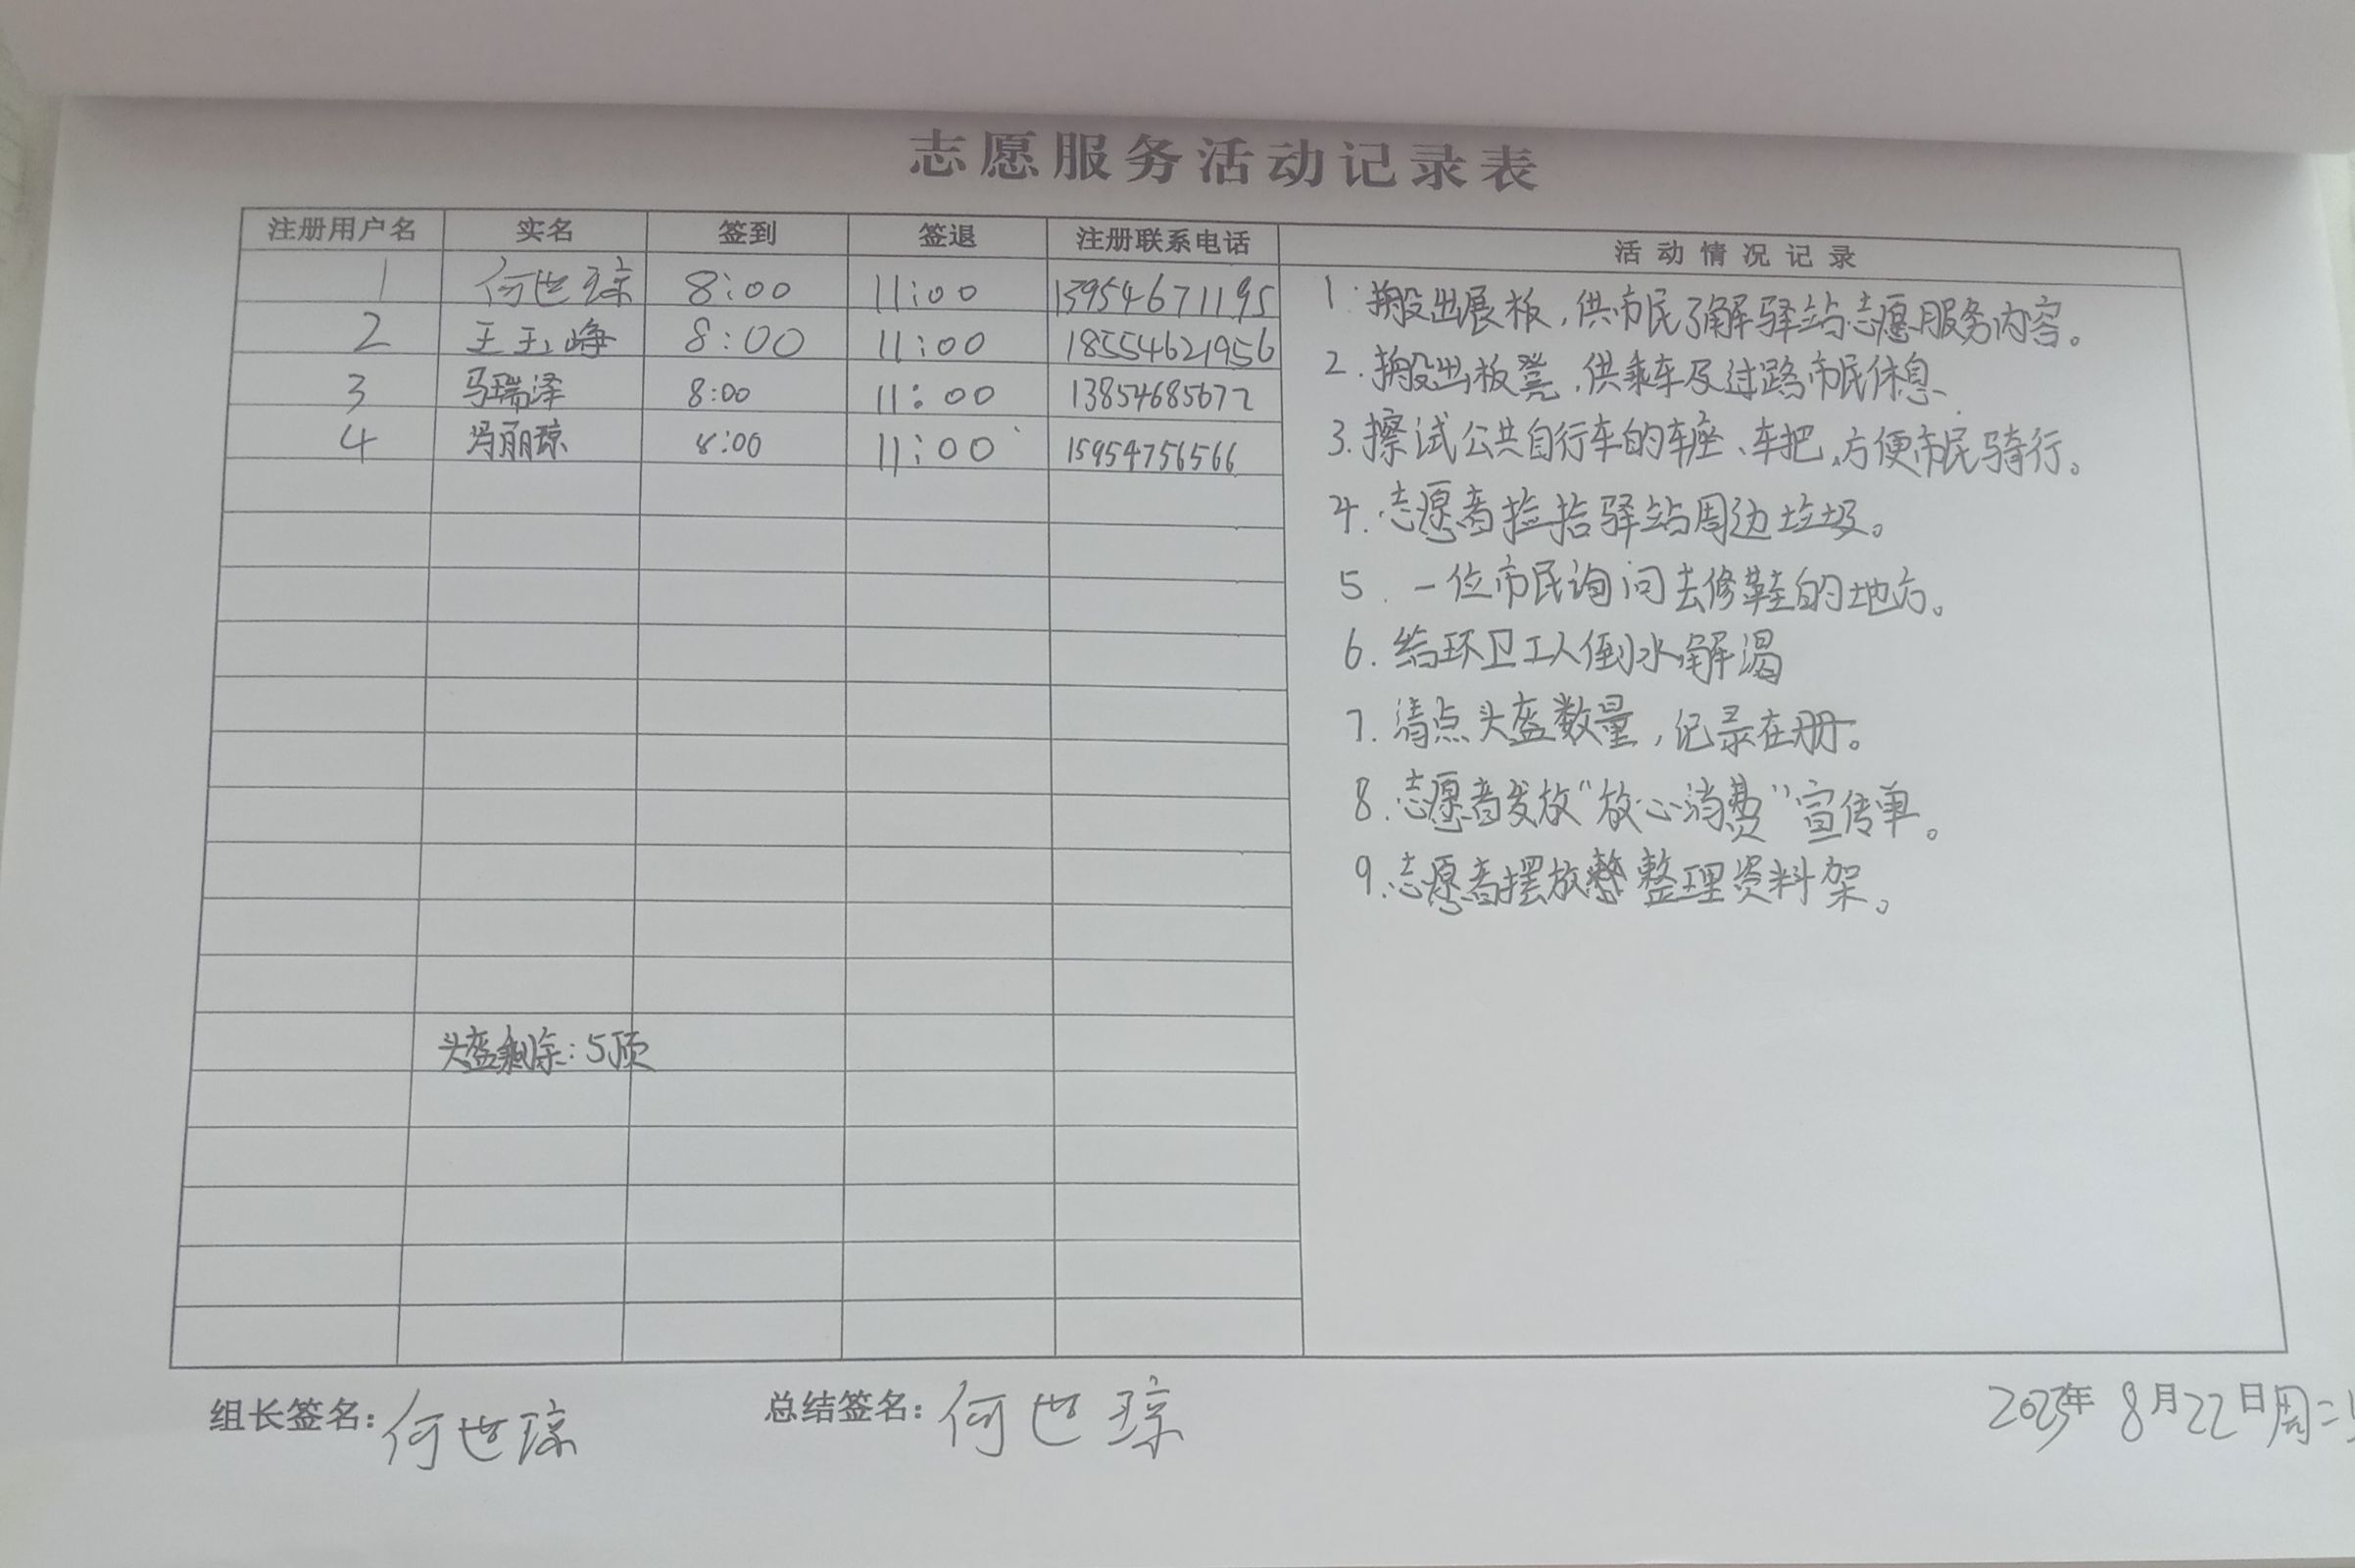 志愿服务活动记录表
注册用户名 实名 签到 签退 注册联系电话 活动情况记录
1 何世琼 8:00 11:00 13954671195
2 王玉峥 8:00 11:00 18554621956
3 马瑞泽 8:00 11:00 13854685672
4 冯丽琼 8:00 11:00 15954756566
1.搬出展板,供市民了解驿站志愿服务内容。
2.搬出板凳,供乘车及过路市民休息.
3.擦试公共自行车的车座、车把,方便市民骑行。
4.志愿者捡拾驿站周边垃圾。
5.一位市民询问去修鞋的地方。
6.给环卫工人倒水解渴
7.清点头盔数量,记录在册。
8.志愿者发放“放心消费”宣传单。
9.志愿者摆放整理资料架。
头盔剩余:5顶
组长签名:何世琼 总结签名:何世琼 2023年8月22日周二